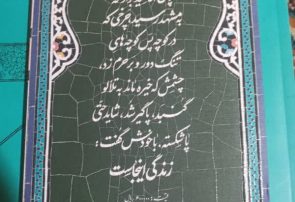 به مشهد رسید، مردی که
در کوچه پس کوچه‌های
تنگ دور و بر حرم زد،
چشمش که خیره ماند به تلألؤ
گنبد، پاگیر شد، شاید حتی
پاشکسته، با خودش گفت:
زندگی اینجاست
ریال